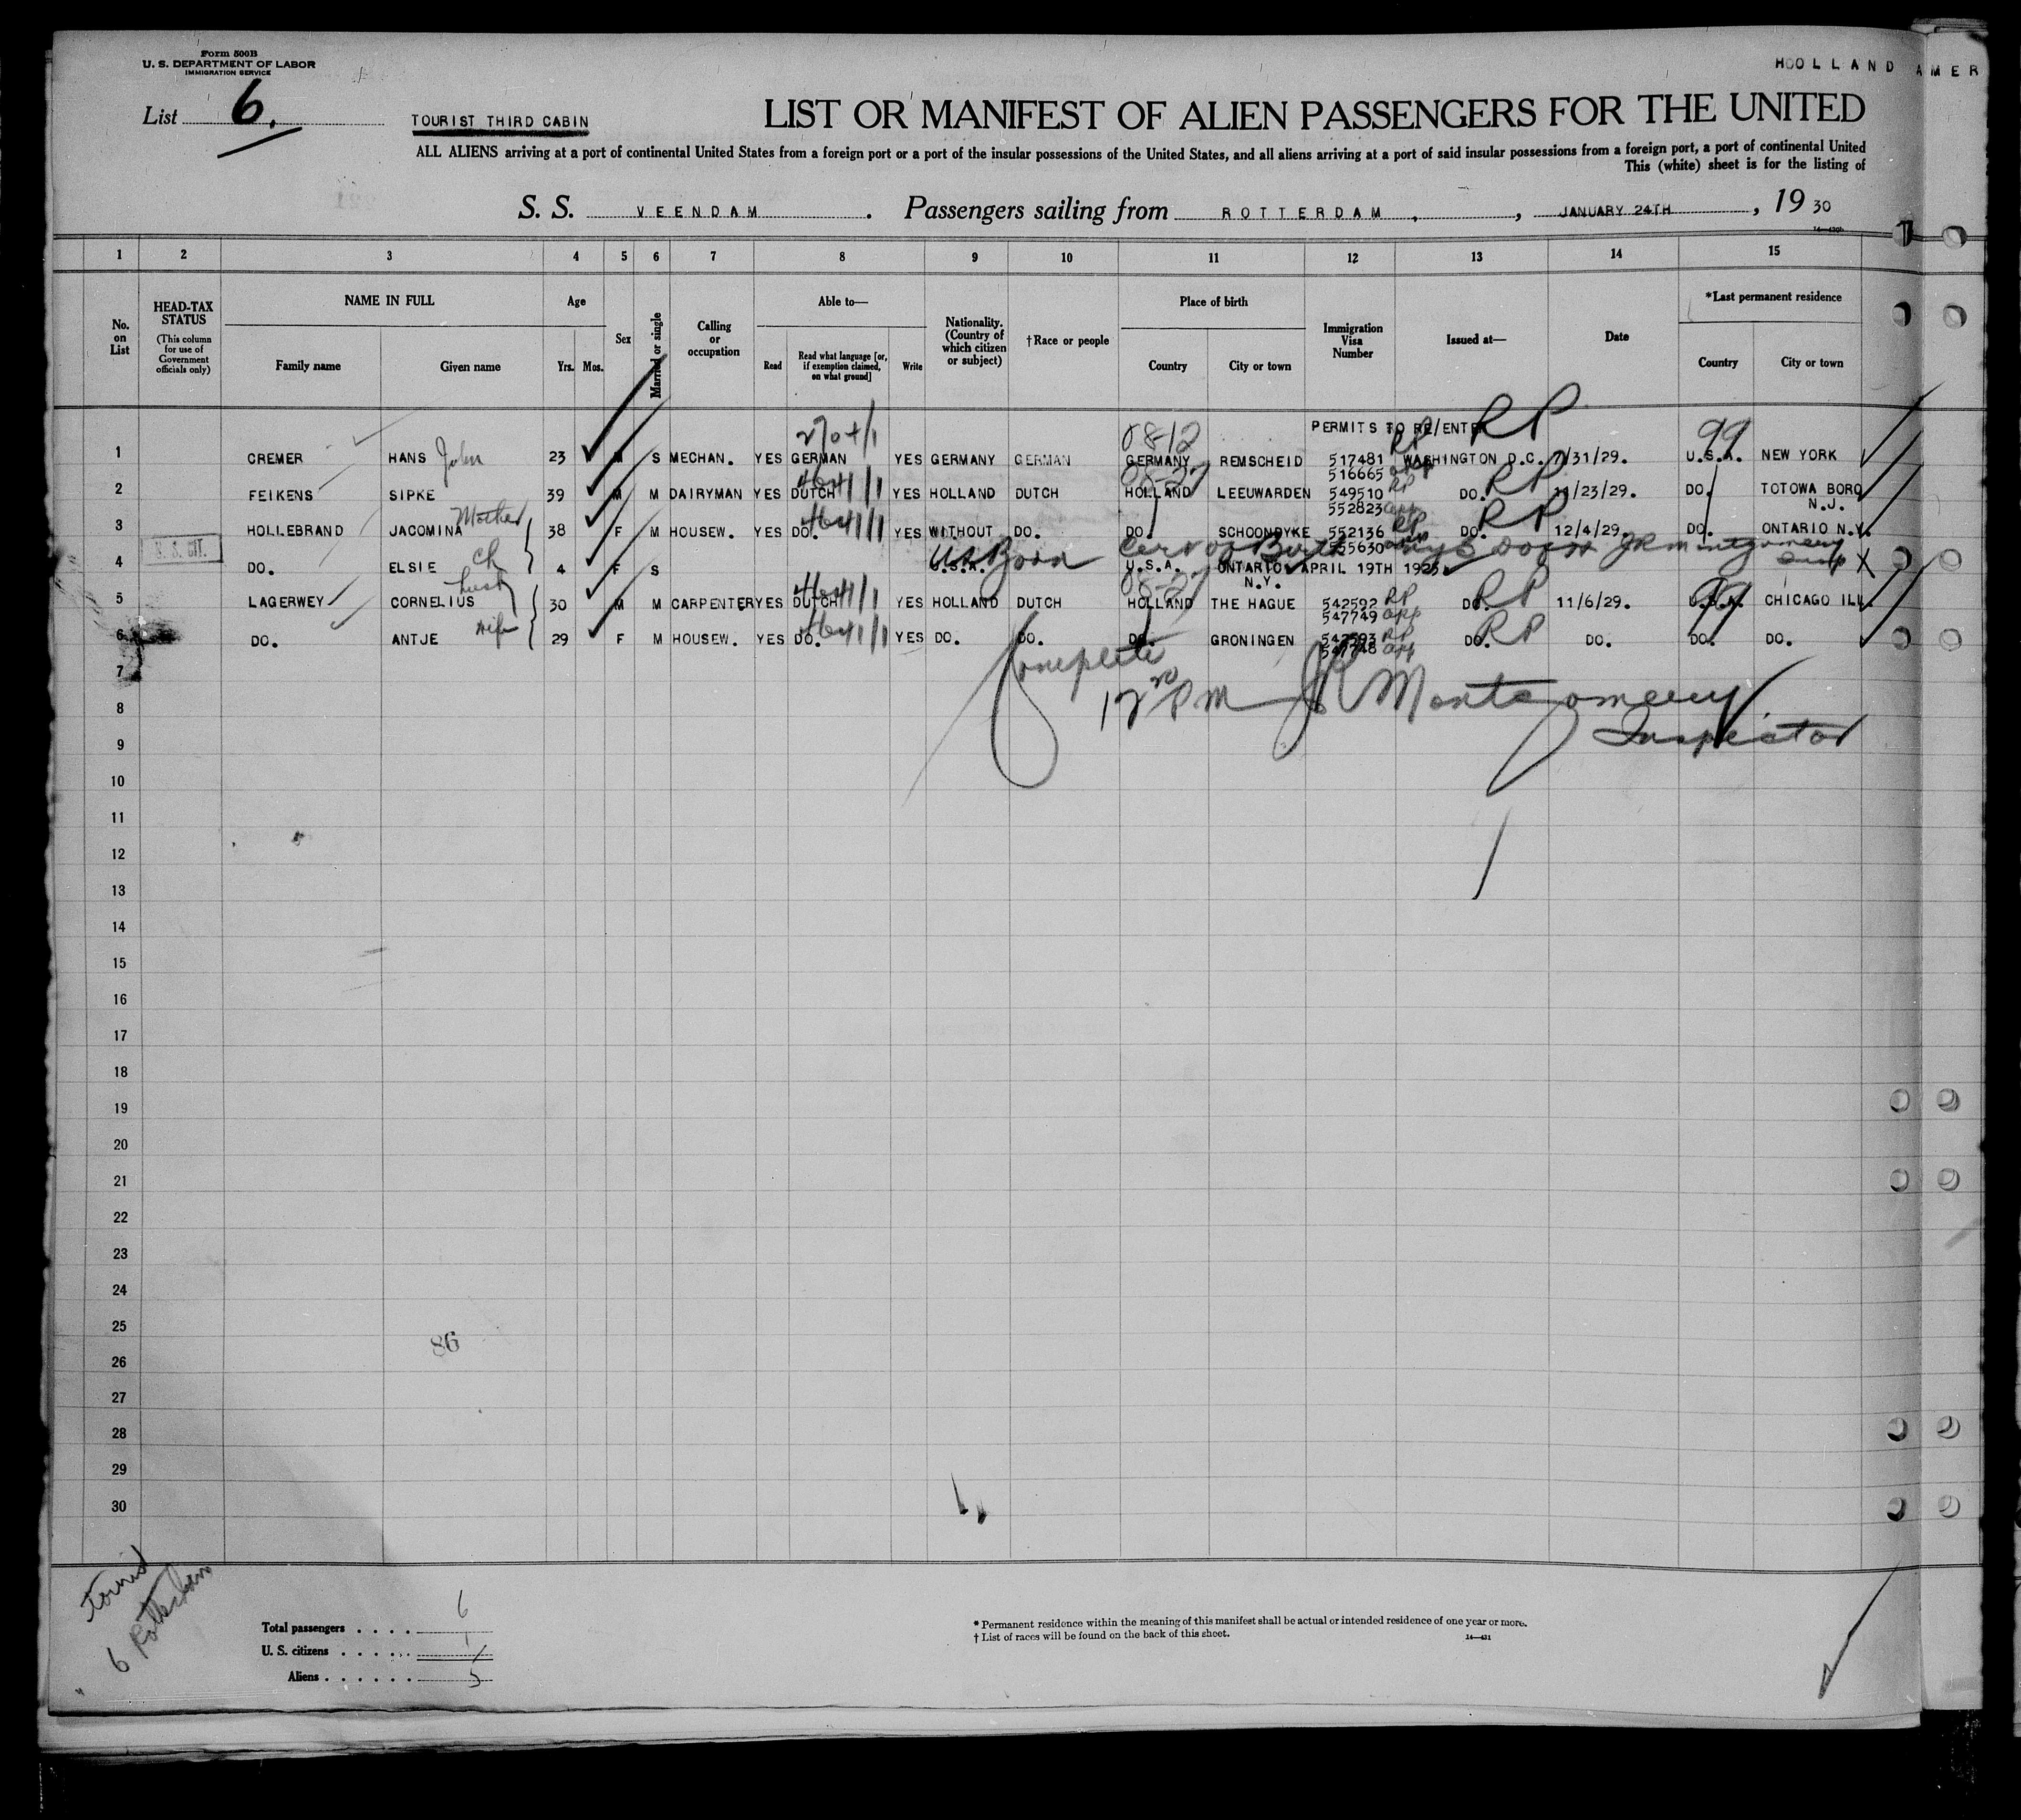 Form 500B
U. S. DEPARTMENT OF LABOR
IMMIGRATION SERVICE
HOLLAND AMER
List 6.
TOURIST THIRD CABIN
LIST OR MANIFEST OF ALIEN PASSENGERS FOR THE UNITED
ALL ALIENS arriving at a port of continental United States from a foreign port or a port of the insular possessions of the United States, and all aliens arriving at a port of said insular possessions from a foreign port, a port of continental United
This (white) sheet is for the listing of
S. S. VEENDAM . Passengers sailing from ROTTERDAM , , JANUARY 24TH , 19 30
1 2 3 4 5 6 7 8 9 10 11 12 13 14 15
No. on List
HEAD-TAX STATUS
(This column for use of Government officials only)
NAME IN FULL
Family name Given name
Age
Yrs. Mos.
Sex
Married or single
Calling or occupation
Able to—
Read Read what language [or, if exemption claimed, on what ground] Write
Nationality. (Country of which citizen or subject)
†Race or people
Place of birth
Country City or town
Immigration Visa Number
Issued at—
Date
*Last permanent residence
Country City or town
PERMITS TO RE/ENTER RP
270+/1 08-12 RP 99
1 CREMER HANS John 23 M S MECHAN. YES GERMAN YES GERMANY GERMAN GERMANY REMSCHEID 517481 WASHINGTON D.C. 7/31/29. U.S.A. NEW YORK
516665 app
4641/1 08-27
2 FEIKENS SIPKE 39 M M DAIRYMAN YES DUTCH YES HOLLAND DUTCH HOLLAND LEEUWARDEN 549510 RP DO. RP 11/23/29. DO. TOTOWA BORO
552823 app N.J.
Mother 4641/1
3 HOLLEBRAND JACOMINA 38 F M HOUSEW. YES DO. YES WITHOUT DO. DO. SCHOONDYKE 552136 RP DO. RP 12/4/29. DO. ONTARIO N.Y.
U.S. CIT. ch US Born Cert of Birth JR Montgomery
Insp
4 DO. ELSIE 4 F S U.S.A. U.S.A. ONTARIO APRIL 19TH 1925. X
N.Y.
husb 4641/1 08-27 99
5 LAGERWEY CORNELIUS 30 M M CARPENTER YES DUTCH YES HOLLAND DUTCH HOLLAND THE HAGUE 542592 RP DO. RP 11/6/29. U.S.A. CHICAGO ILL.
547749 app
wife 4641/1
6 DO. ANTJE 29 F M HOUSEW. YES DO. YES DO. DO. DO. GRONINGEN 542593 RP DO. RP DO. DO. DO.
547748 app
Complete
7
12 PM JR Montgomery
8
Inspector
9
10
11
12
13
14
15
16
17
18
19
20
21
22
23
24
25
86
26
27
28
29
30
Tourist
6 Rotterdam
Total passengers . . . . 6
U. S. citizens . . . . . 1
Aliens . . . . . . 5
* Permanent residence within the meaning of this manifest shall be actual or intended residence of one year or more.
† List of races will be found on the back of this sheet.
14—431